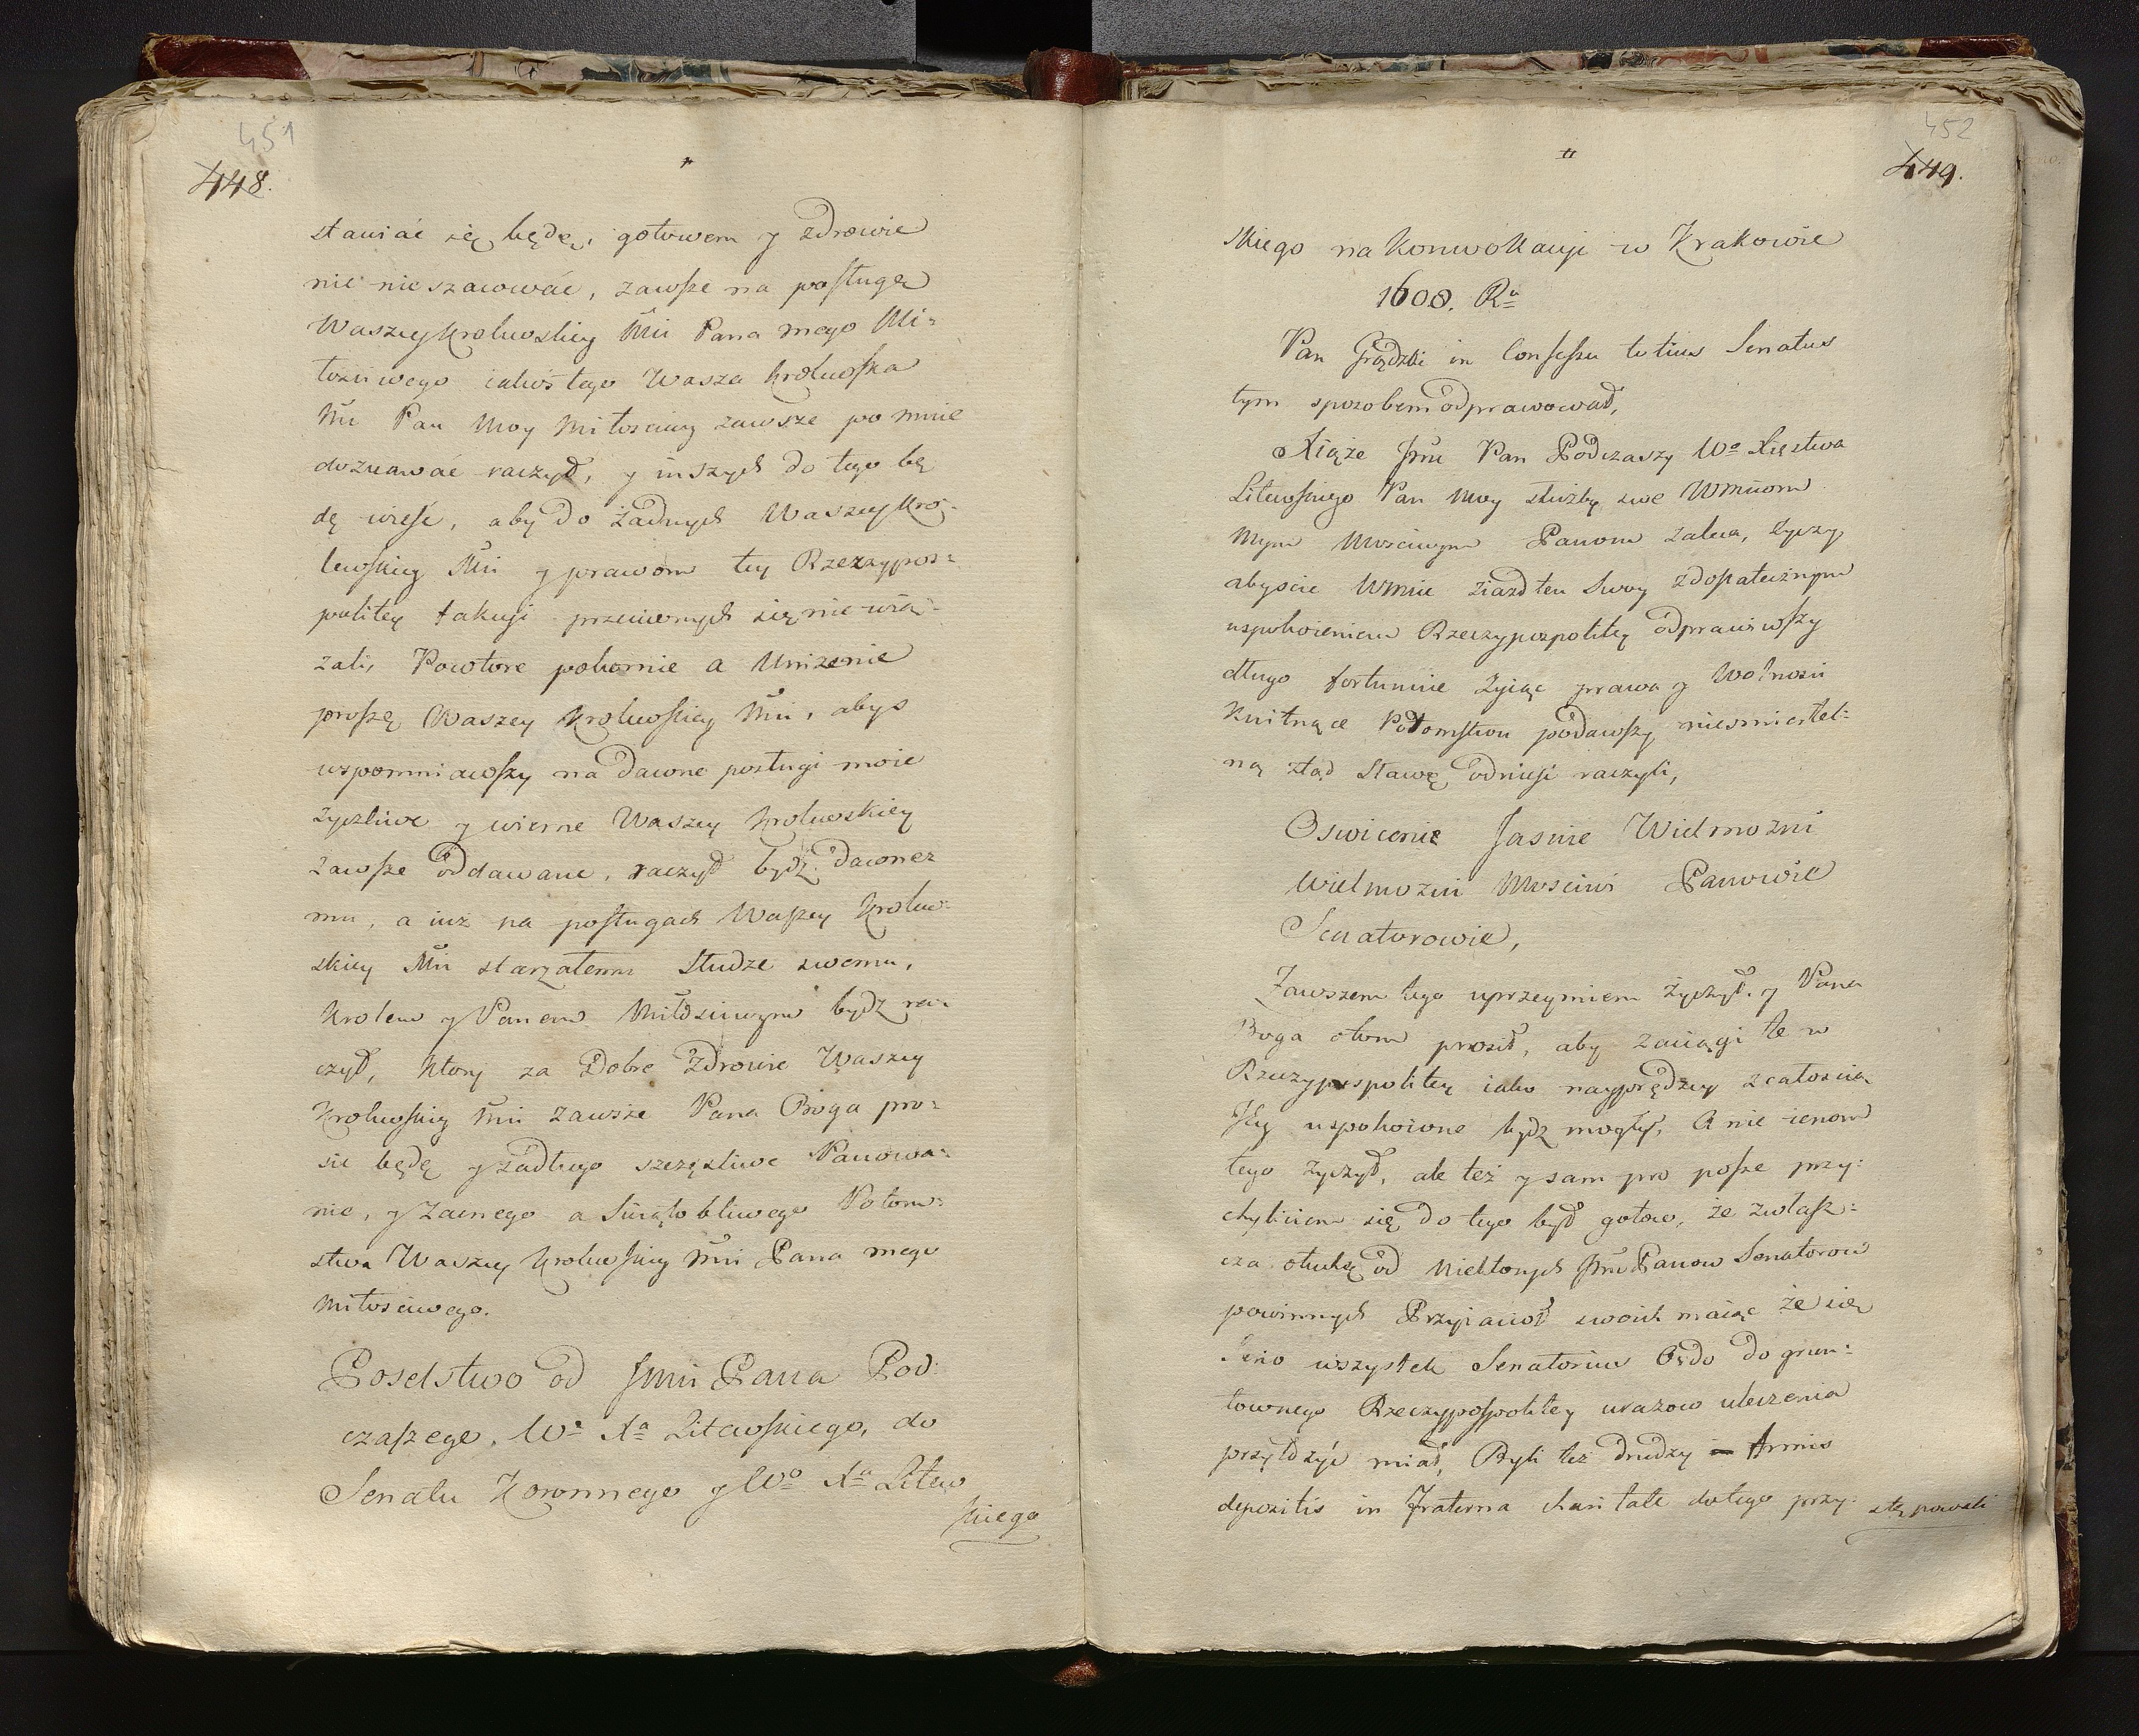 451
448.
stawiać się będę, gotowem y zdrowie
nic nie szacować, zawsze na posługę
Waszey Krolewskiey Mći Pana mego Mi=
łosciwego iakoś tego Wasza Krolewska
Mć Pan Moy Miłosciwy zawsze po mnie
doznawać raczył, y inszych do tego bę
dę wiesć, aby do żadnych Waszey Kro=
lewskiey Mći y prawom tey Rzeczypos=
politey fakcyi przeciwnych się nie wią=
zali, Powtore pokornie a Unizenie
proszę Waszey Krolewskiey Mći, abys
wspomniawszy na dawne posługi moie
życzliwe y wierne Waszey Krolewskiey
zawsze oddawane, raczył bydz dawne=
mu, a iuz na posługach Waszey Krolew=
skiey Mći starzałemu słudze swemu,
Krolem y Panem Miłosciwym bydz ra=
czył, ktory za Dobre Zdrowie Waszey
Krolewskiey Mći zawsze Pana Boga pro=
sic będę y za długo szczęsliwe Panowa=
nie, y Zacnego a Swiątobliwego Potom=
stwa Waszey Krolewskiey Mći Pana mego
Miłosciwego.
Poselstwo od Jmći Pana Pod=
czaszego, Wo Xa Litewskiego, do
Senatu Koronnego y Wo Xa Litew
skiego
452
449.
skiego na Konwokacyi w Krakowie
1608. Ru
Pan Grądzki in Consessu totius Senatus
tym sposobem odprawował,
Xiąże Jmć Pan Podczaszy Wo Xięstwa
Litewskiego Pan Moy służby swe Wmciom
Mym Mosciwym Panom zaleca, życzy
abyscie Wmcie ziazd ten swoy z dostatecznym
uspokoieniem Rzeczypospolitey odprawiwszy
długo fortunnie żyiąc prawa y Wolnosci
kwitnące Potomstwu podawszy niesmiertel=
ną ztąd sławę odniesć raczyli,
Oswiecenie Jasnie Wielmozni
Wielmozni Mosciwi Panowie
Senatorowie,
Zawszem tego uprzeymiem życzył y Pana
Boga o tom prosił, aby zaciągi te w
Rzeczypospolitey iako nayprędzey z całoscią
Jey uspokoione bydz mogły, A nie ienom
tego życzył, ale też y sam pro posse przy=
chyliciem się do tego był gotow, że zwłasz=
cza otuchę od niektorych Jmć Panow Senatorow
powinnych Przyiacioł swoich maiąc że się
wszystek Senatorius Ordo do grun=
townego Rzeczypospolitey urazow uleczenia
przyłożyć miał, Byli też drudzy Armis
depositis in fraterna charitate do tego przy=
stępowali